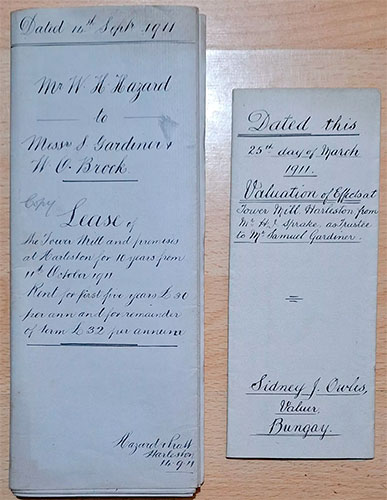 Dated 16th Septr 1911
Mr W. H. Hazard
to
Messrs S. Gardiner &
W. O. Brock.
Copy
Lease of
the Tower Mill and premises
at Harleston for 10 years from
11th October 1911
Rent for first five years £30
per ann and for remainder
of term £32 per annum
Hazard & Pratt
Harleston
16.9.11
Dated this
25th day of March
1911.
Valuation of Effects at
Tower Mill Harleston from
Mr Hy Sprake, as Trustee
to Mr Samuel Gardiner.
Sidney J. Owles,
Valuer,
Bungay.